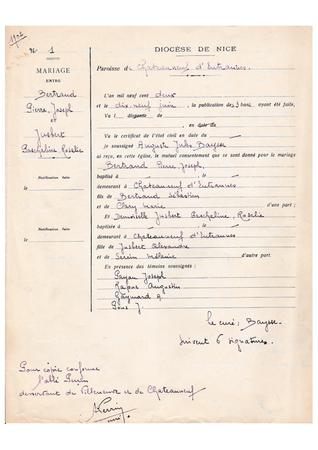 1902
DIOCÈSE DE NICE
N° 1
MARIAGE
ENTRE
Bertrand
Pierre Joseph
et
Jusbert
Pascheline Roselie
Notification faite
le
à
Notification faite
le
à
Paroisse de Chateauneuf d'Entraunes
L'an mil neuf cent deux
et le dix-neuf juin, la publication des bans, ayant été faite,
Vu l dispense de
en date du
Vu le certificat de l'état civil en date du
je soussigné Auguste Jules Baysse
ai reçu, en cette église, le mutuel consentement que se sont donné pour le mariage
Bertrand Pierre Joseph
baptisé à le
demeurant à Chateauneuf d'Entraunes
fils de Bertrand Sébastien
et de Clary Marie d'une part ;
Et Demoiselle Jusbert Pascheline, Roselie
baptisée à le
demeurant à Chateauneuf d'Entraunes
fille de Jusbert Alexandre
et de Mélanie d'autre part.
En présence des témoins soussignés :
Payan Joseph
Augustin
Raymard A.
Pons J.
le curé : Baysse
suivent 6 signatures.
Pour copie conforme
l'abbé Perrin
desservant de Villeneuve et de Chateauneuf
Perrin
curé